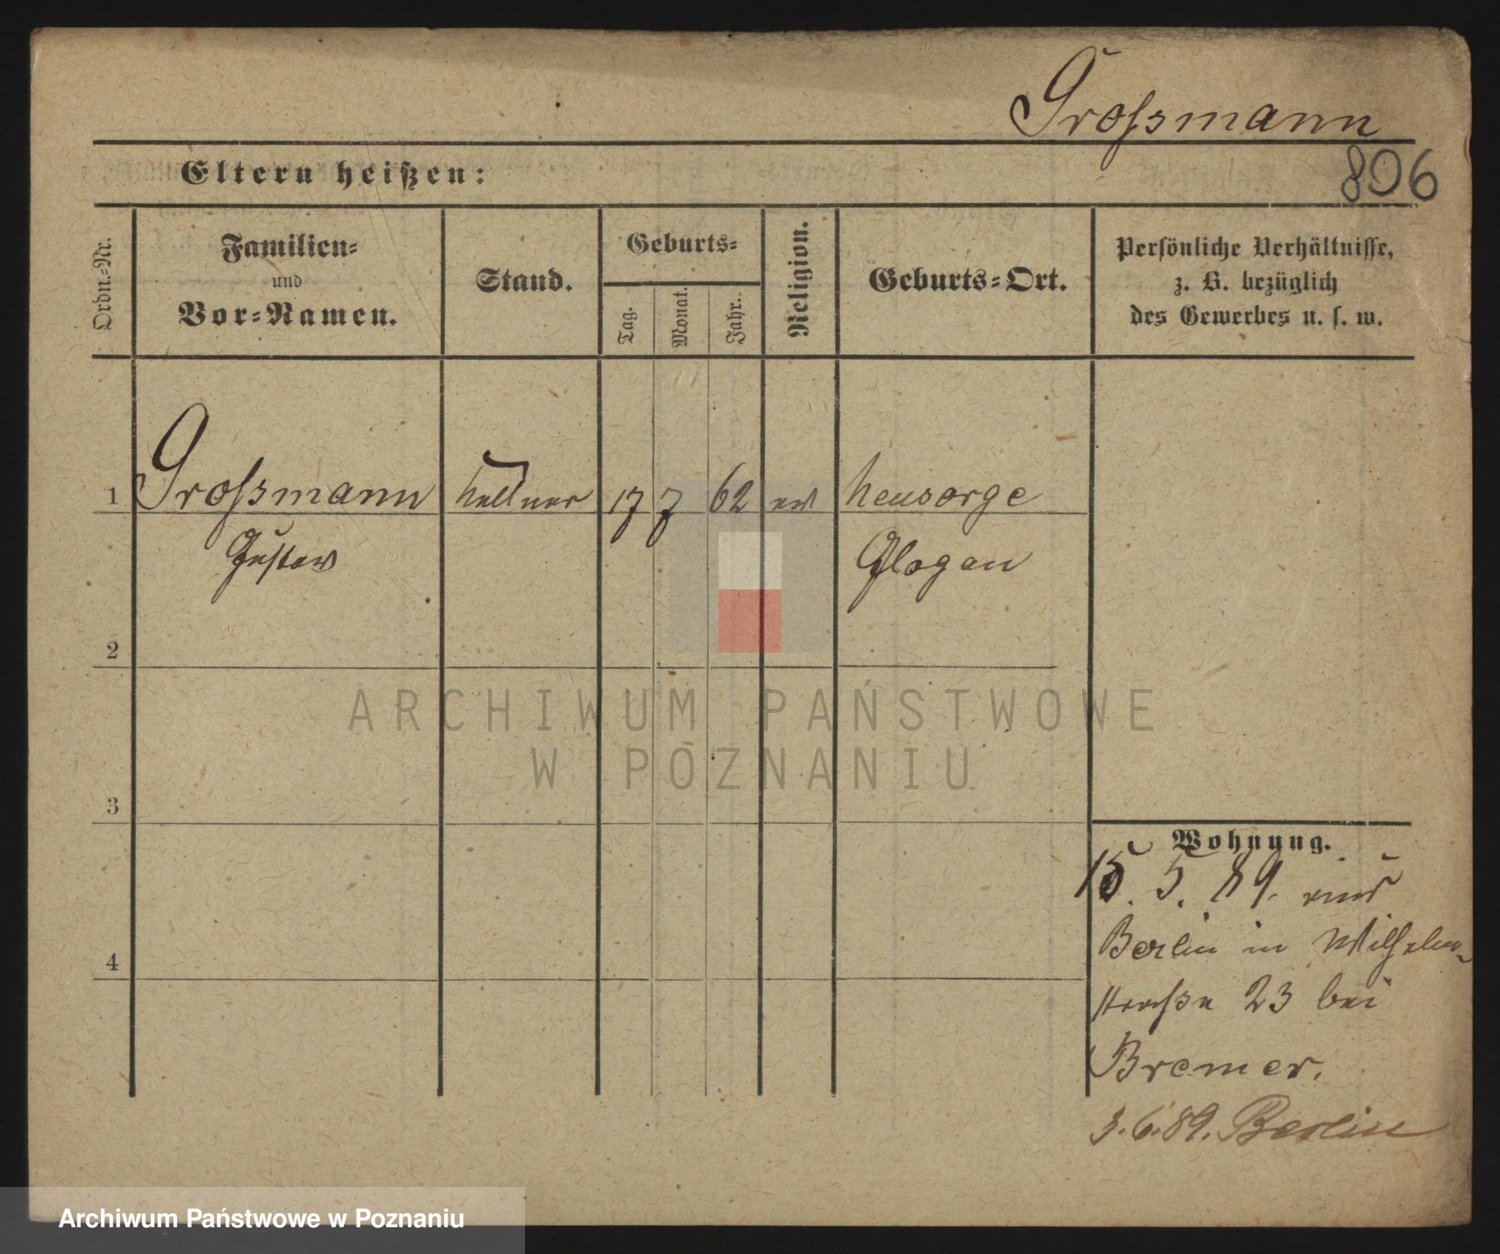 Großmann
806
Eltern heißen:
Ordn.-Nr.
Familien-
und
Vor-Namen.
Stand.
Geburts-
Tag.
Monat.
Jahr.
Religion.
Geburts-Ort.
Persönliche Verhältnisse,
z. B. bezüglich
des Gewerbes u. s. w.
1 Großmann Kellner 17 7 62 ev Neusorge
Gustav Glogau
2
3
4
Wohnung.
15. 5. 89. aus
Berlin in Wilhelm-
straße 23 bei
Bremer.
3.6.89. Berlin
ARCHIWUM PAŃSTWOWE
W POZNANIU
Archiwum Państwowe w Poznaniu